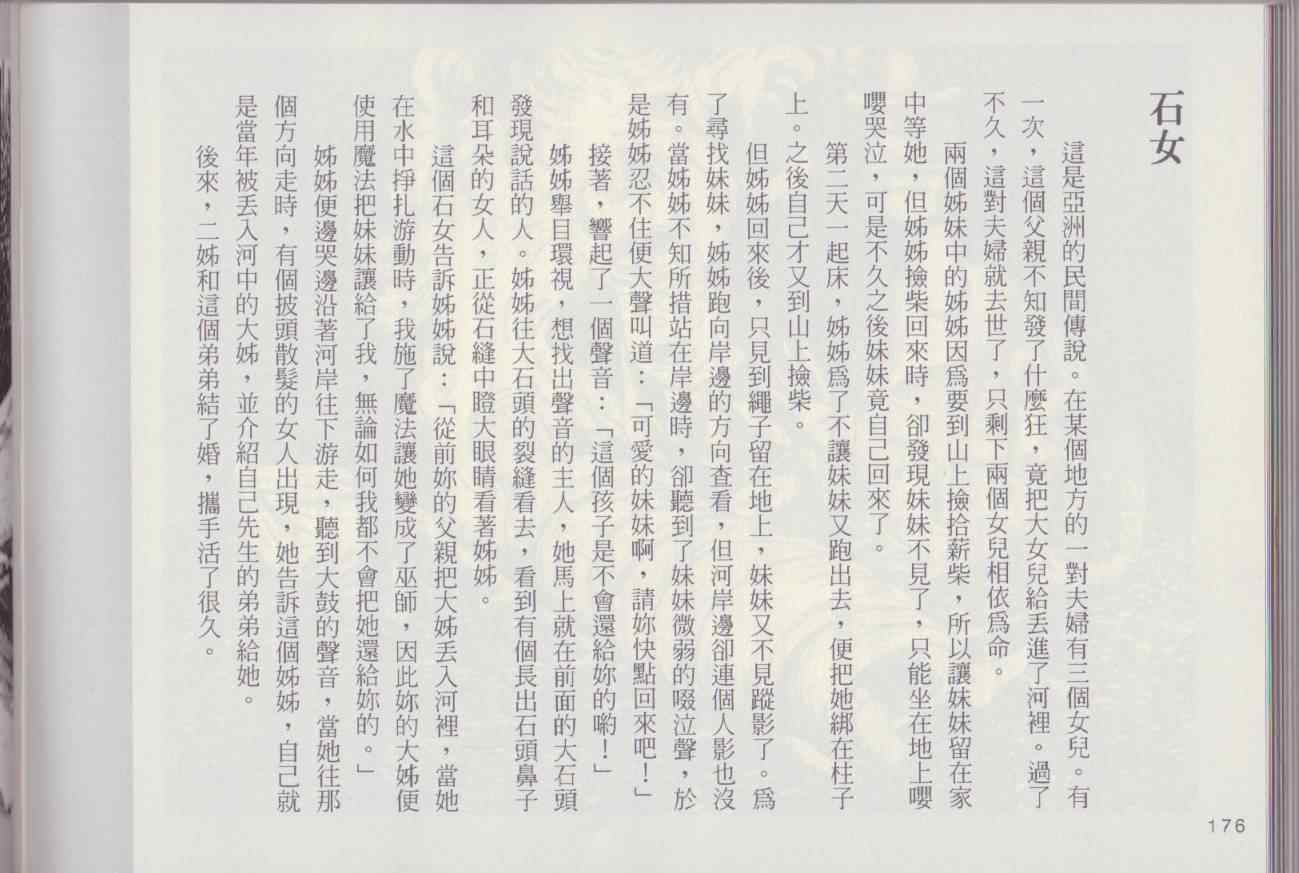 石女
這是亞洲的民間傳說。在某個地方的一對夫婦有三個女兒。有
一次，這個父親不知發了什麼狂，竟把大女兒給丟進了河裡。過了
不久，這對夫婦就去世了，只剩下兩個女兒相依爲命。
兩個姊妹中的姊姊因爲要到山上撿拾薪柴，所以讓妹妹留在家
中等她，但姊姊撿柴回來時，卻發現妹妹不見了，只能坐在地上嚶
嚶哭泣，可是不久之後妹妹竟自己回來了。
第二天一起床，姊姊爲了不讓妹妹又跑出去，便把她綁在柱子
上。之後自己才又到山上撿柴。
但姊姊回來後，只見到繩子留在地上，妹妹又不見蹤影了。爲
了尋找妹妹，姊姊跑向岸邊的方向查看，但河岸邊卻連個人影也沒
有。當姊姊不知所措站在岸邊時，卻聽到了妹妹微弱的啜泣聲，於
是姊姊忍不住便大聲叫道：「可愛的妹妹啊，請妳快點回來吧！」
接著，響起了一個聲音：「這個孩子是不會還給妳的喲！」
姊姊舉目環視，想找出聲音的主人，她馬上就在前面的大石頭
發現說話的人。姊姊往大石頭的裂縫看去，看到有個長出石頭鼻子
和耳朵的女人，正從石縫中瞪大眼睛看著姊姊。
這個石女告訴姊姊說：「從前妳的父親把大姊丟入河裡，當她
在水中掙扎游動時，我施了魔法讓她變成了巫師，因此妳的大姊便
使用魔法把妹妹讓給了我，無論如何我都不會把她還給妳的。」
姊姊便邊哭邊沿著河岸往下游走，聽到大鼓的聲音，當她往那
個方向走時，有個披頭散髮的女人出現，她告訴這個姊姊，自己就
是當年被丟入河中的大姊，並介紹自己先生的弟弟給她。
後來，二姊和這個弟弟結了婚，攜手活了很久。
176